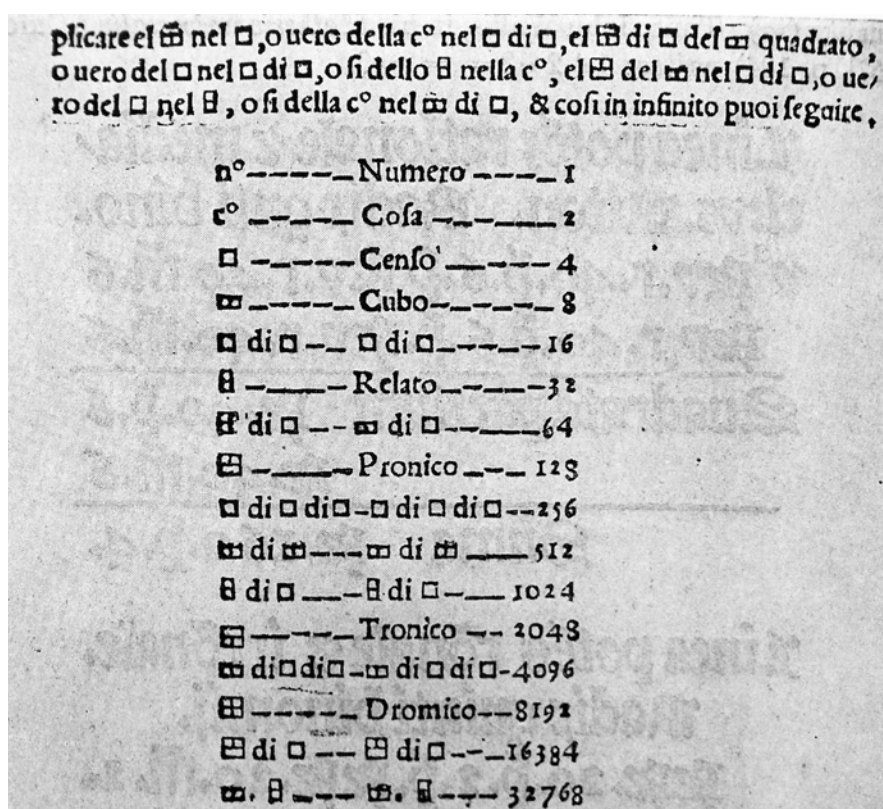 plicare el ⌑ nel □, o uero della cº nel □ di □, el ⌑ di □ del ⌑ quadrato,
o uero del □ nel □ di □, o ſi dello 日 nella cº, el ⊞ del ⌑ nel □ di □, o ue/
ro del □ nel 日, o ſi della cº nel ⌑ di □, & coſi in infinito puoi ſeguire.
nº ------ Numero ---- 1
cº ----- Coſa ------ 2
□ ------ Cenſo ------ 4
⌑ ------ Cubo ------ 8
□ di □ -- □ di □ ------ 16
日 ----- Relato ------ 32
⌑ di □ --- ⌑ di □ ----- 64
⊞ ----- Pronico --- 128
□ di □ di □ - □ di □ di □ -- 256
⌑ di ⌑ --- ⌑ di ⌑ ---- 512
日 di □ --- 日 di □ --- 1024
⊞ ------ Tronico -- 2048
⌑ di □ di □ - ⌑ di □ di □ - 4096
⊞ ------ Dromico -- 8192
⊞ di □ --- ⊞ di □ --- 16384
⌑. 日 ---- ⌑. 日 ---- 32768